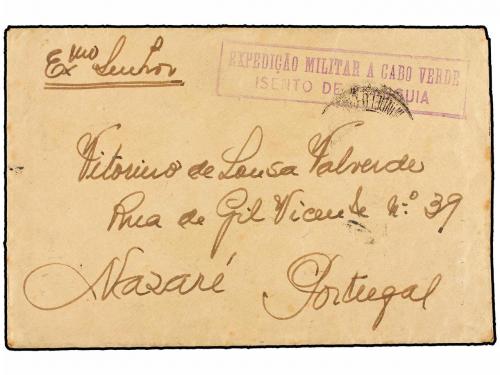 Exmo Senhor
EXPEDIÇÃO MILITAR A CABO VERDE
ISENTO DE
Vitorino de Sousa Valverde
Rua de Gil Vicente N.º 39
Nazaré Portugal